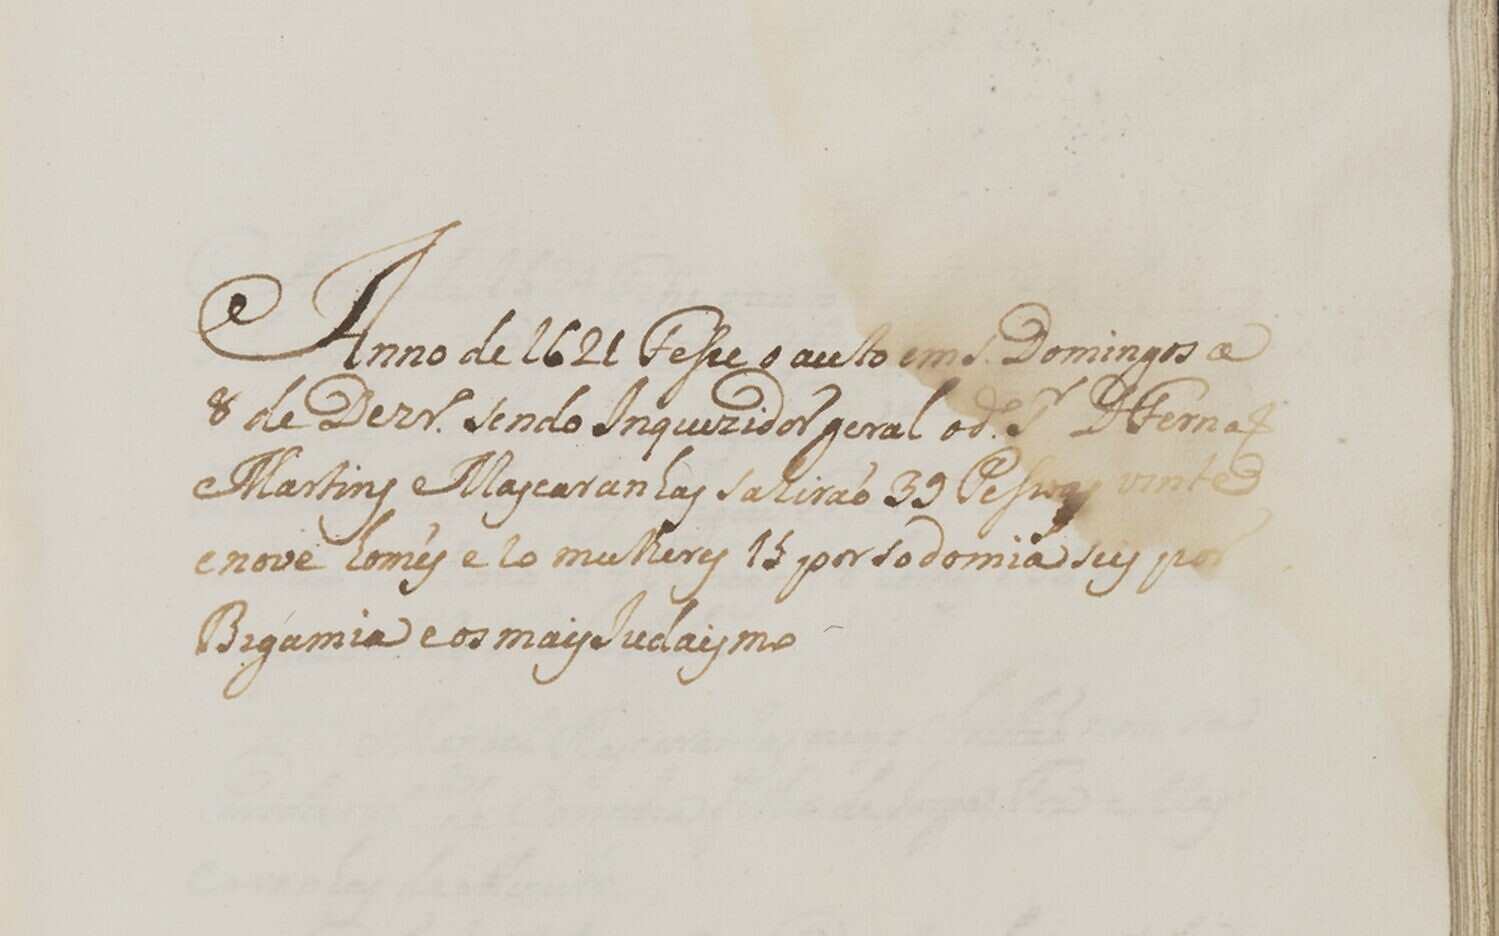 Anno de 1621 Fesse o auto em S. Domingos a
8 de Dezr.o sendo Inquizidor geral o d.o Sr D Ferna
Martins Mascaranhas sahiraõ 39 Pessoas vinte
e nove homẽs e 10 mulheres 15 por sodomia seis por
Bigamia e os mais Judaismo